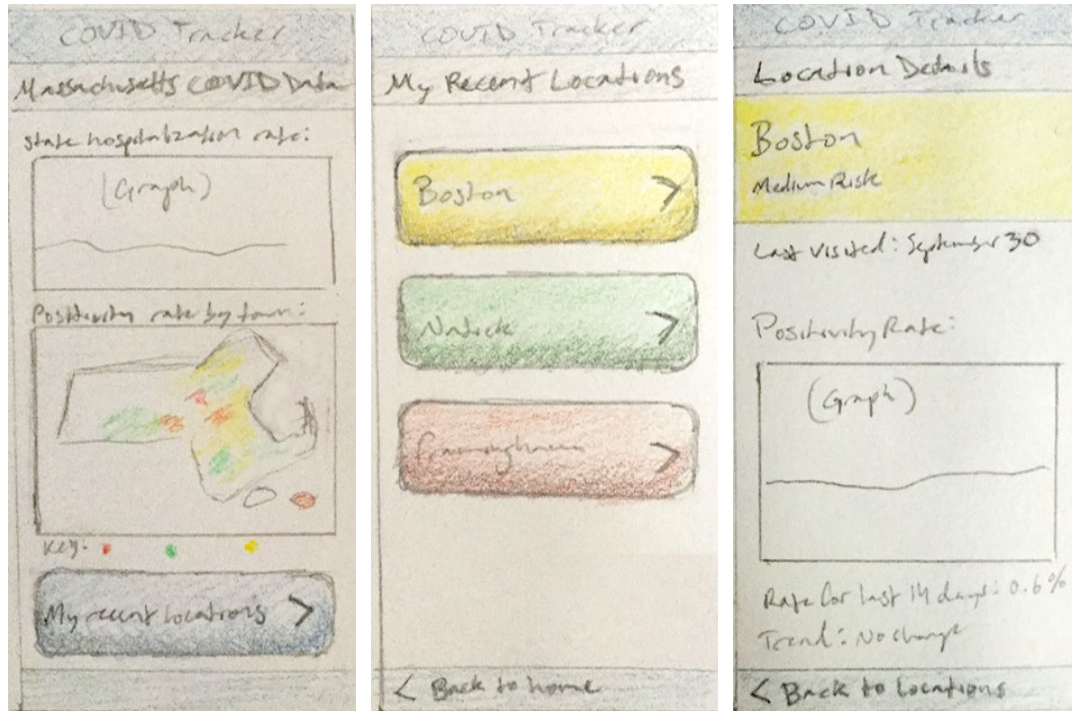 COVID Tracker
Massachusetts COVID Data
State hospitalization rate:
(Graph)
Positivity rate by town:
Key:
My recent locations >
COVID Tracker
My Recent Locations
Boston >
Natick >
Framingham >
COVID Tracker
Location Details
Boston
Medium Risk
Last visited: September 30
Positivity Rate:
(Graph)
Rate for last 14 days: 0.6%
Trend: No change
< Back to home
< Back to locations